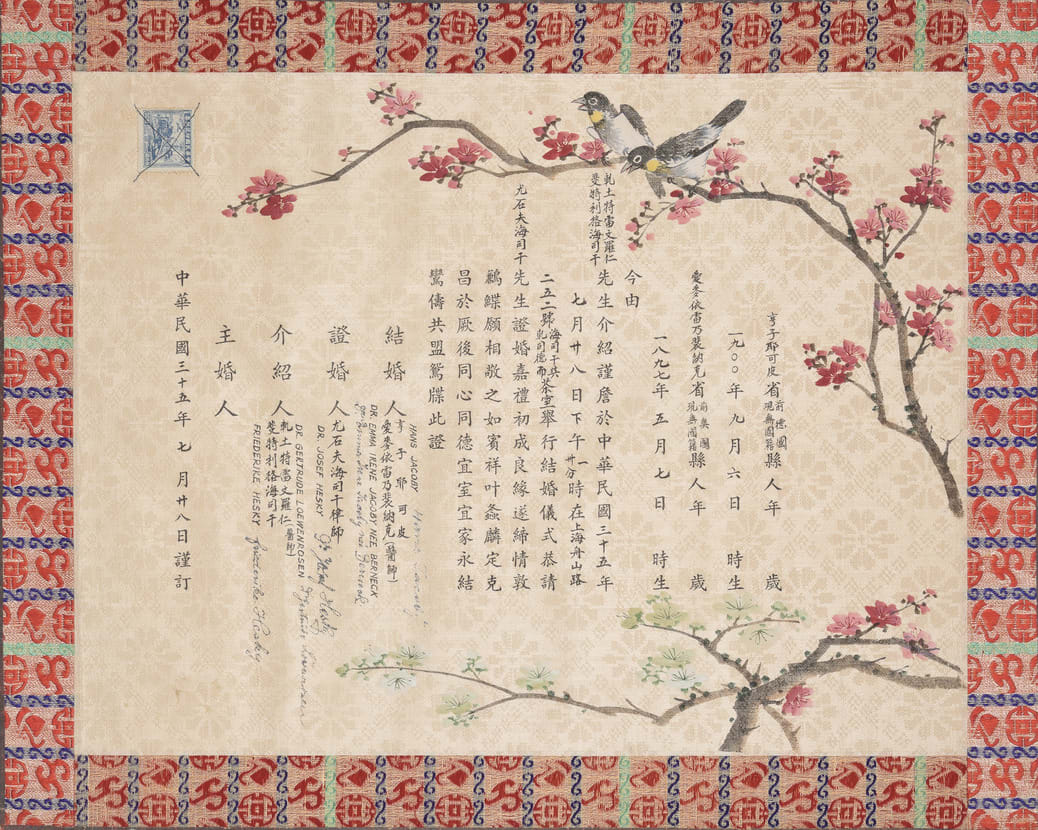 亨子耶可皮 省 前德國 現無國籍 縣人年 歲
一九〇〇年九月六日 時生
愛麥依雷乃裴納克 省 前奧國 現無國籍 縣人年 歲
一八九七年五月七日 時生
今由
乾土特雷文羅仁
斐特利格海司干
先生介紹謹詹於中華民國三十五年
七月廿八日下午一時卅分在上海舟山路
二五二號海司干與乾司德而茶室舉行結婚儀式恭請
尤石夫海司干
先生證婚嘉禮初成良緣遂締情敦
鶼鰈願相敬之如賓祥叶螽麟定克
昌於厥後同心同德宜室宜家永結
鸞儔共盟鴛牒此證
結婚人
HANS JACOBY
亨子耶可皮
愛麥依雷乃裴納克(醫師)
DR. EMMA IRENE JACOBY NEE BERNECK
證婚人
尤石夫海司干律師
DR. JOSEF HESKY
介紹人
DR. GERTRUDE LOEWENROSEN
乾土特雷文羅仁(醫師)
斐特利格海司干
FRIEDERIKE HESKY
Friederike Hesky
主婚人
中華民國三十五年七月廿八日謹訂